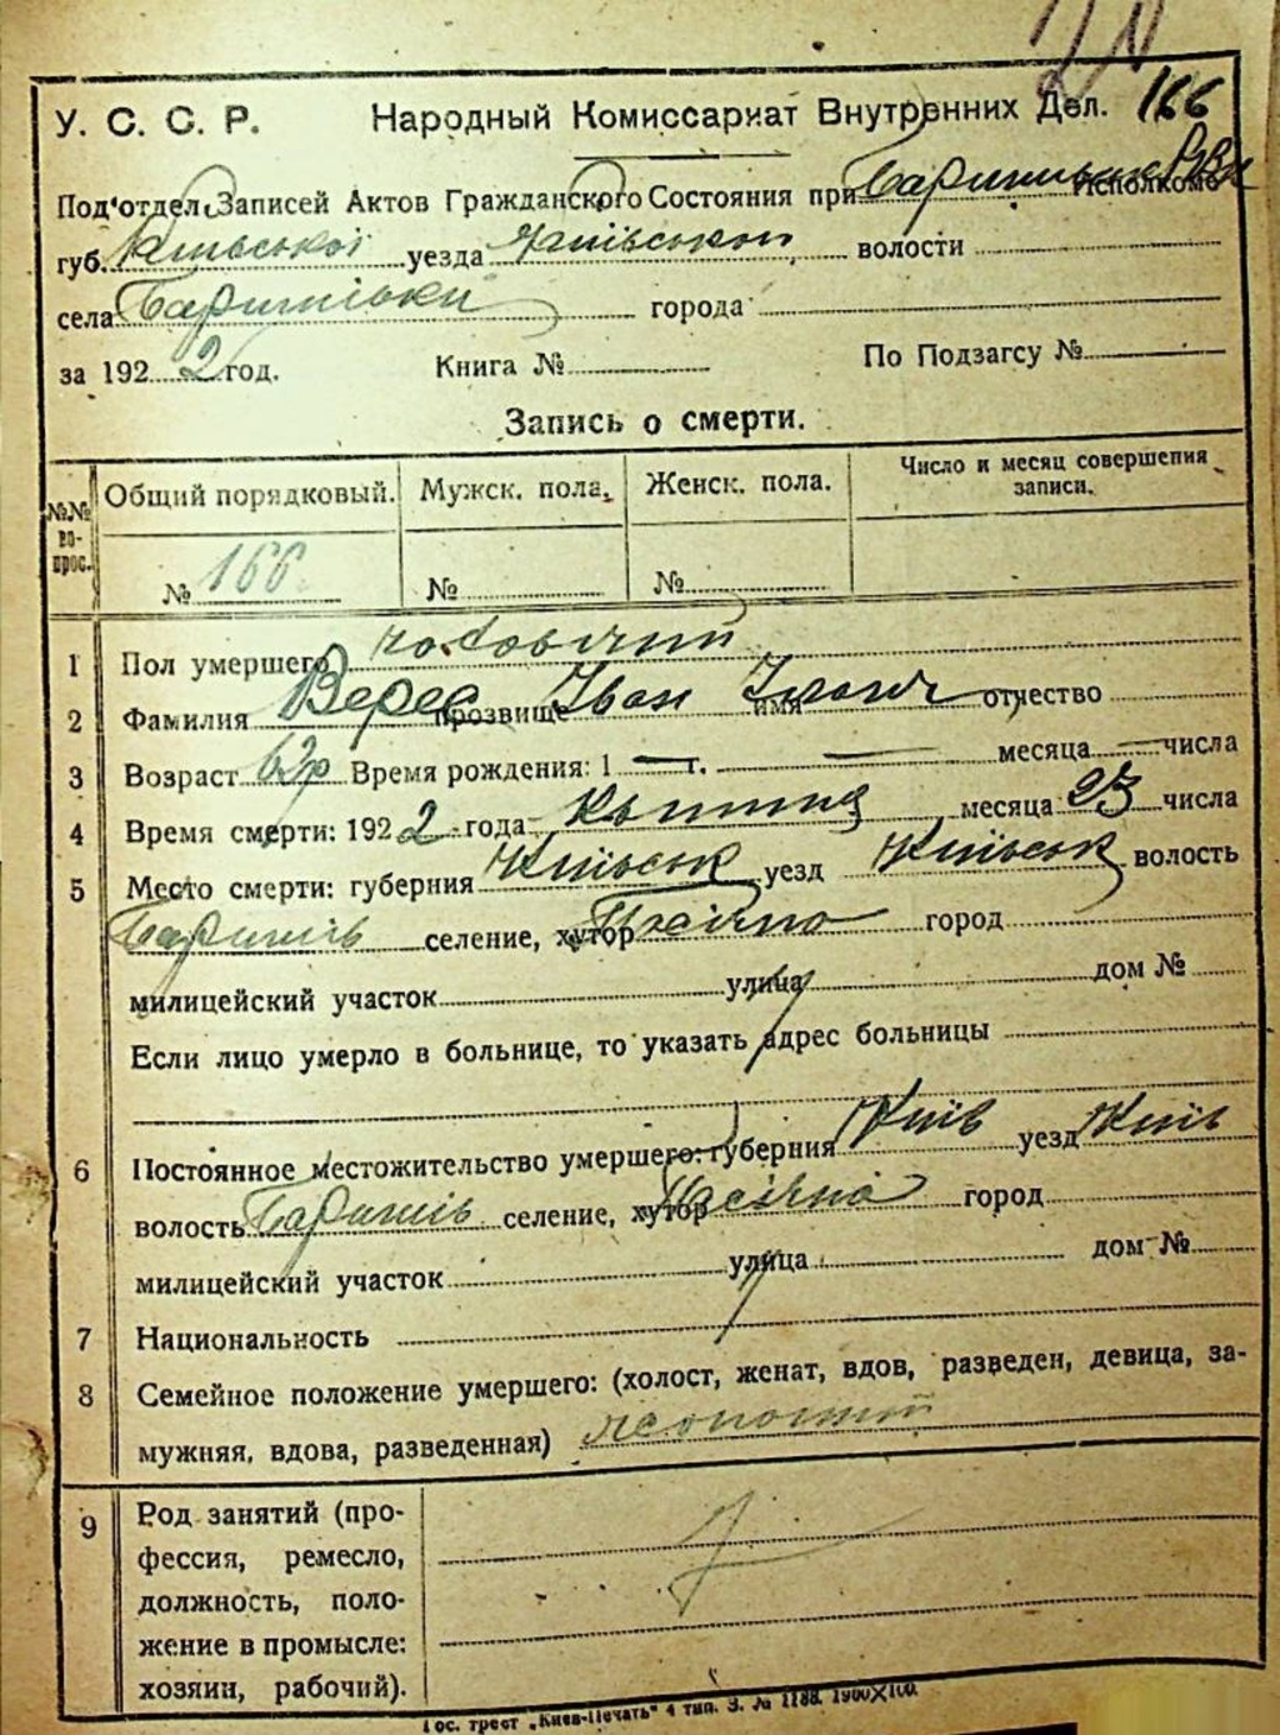 166
У. С. С. Р. Народный Комиссариат Внутренних Дел.
Под'отдел Записей Актов Гражданского Состояния при Исполкоме
губ. Київської уезда волости
села Баришівки города
за 1922 год. Книга № По Подзагсу №
Запись о смерти.
№№ вопрос. Общий порядковый. Мужск. пола. Женск. пола. Число и месяц совершения записи.
№ 166 № №
1 Пол умершего чоловічий
2 Фамилия Верес прозвище Іван имя Іванов отчество
3 Возраст 62р Время рождения: 1 — г. — месяца — числа
4 Время смерти: 1922 года месяца 23 числа
5 Место смерти: губерния Київськ уезд Київськ волость
Баришів селение, хутор Пасічна город
милицейский участок улица дом №
Если лицо умерло в больнице, то указать адрес больницы
6 Постоянное местожительство умершего: губерния Київ уезд Київ
волость Баришів селение, хутор Пасічна город
милицейский участок улица дом №
7 Национальность
8 Семейное положение умершего: (холост, женат, вдов, разведен, девица, за-
мужняя, вдова, разведенная)
9 Род занятий (про-
фессия, ремесло,
должность, поло-
жение в промысле:
хозяин, рабочий).
Гос. трест „Киев-Печать" 4 тип. З. № 1188. 1900X100.